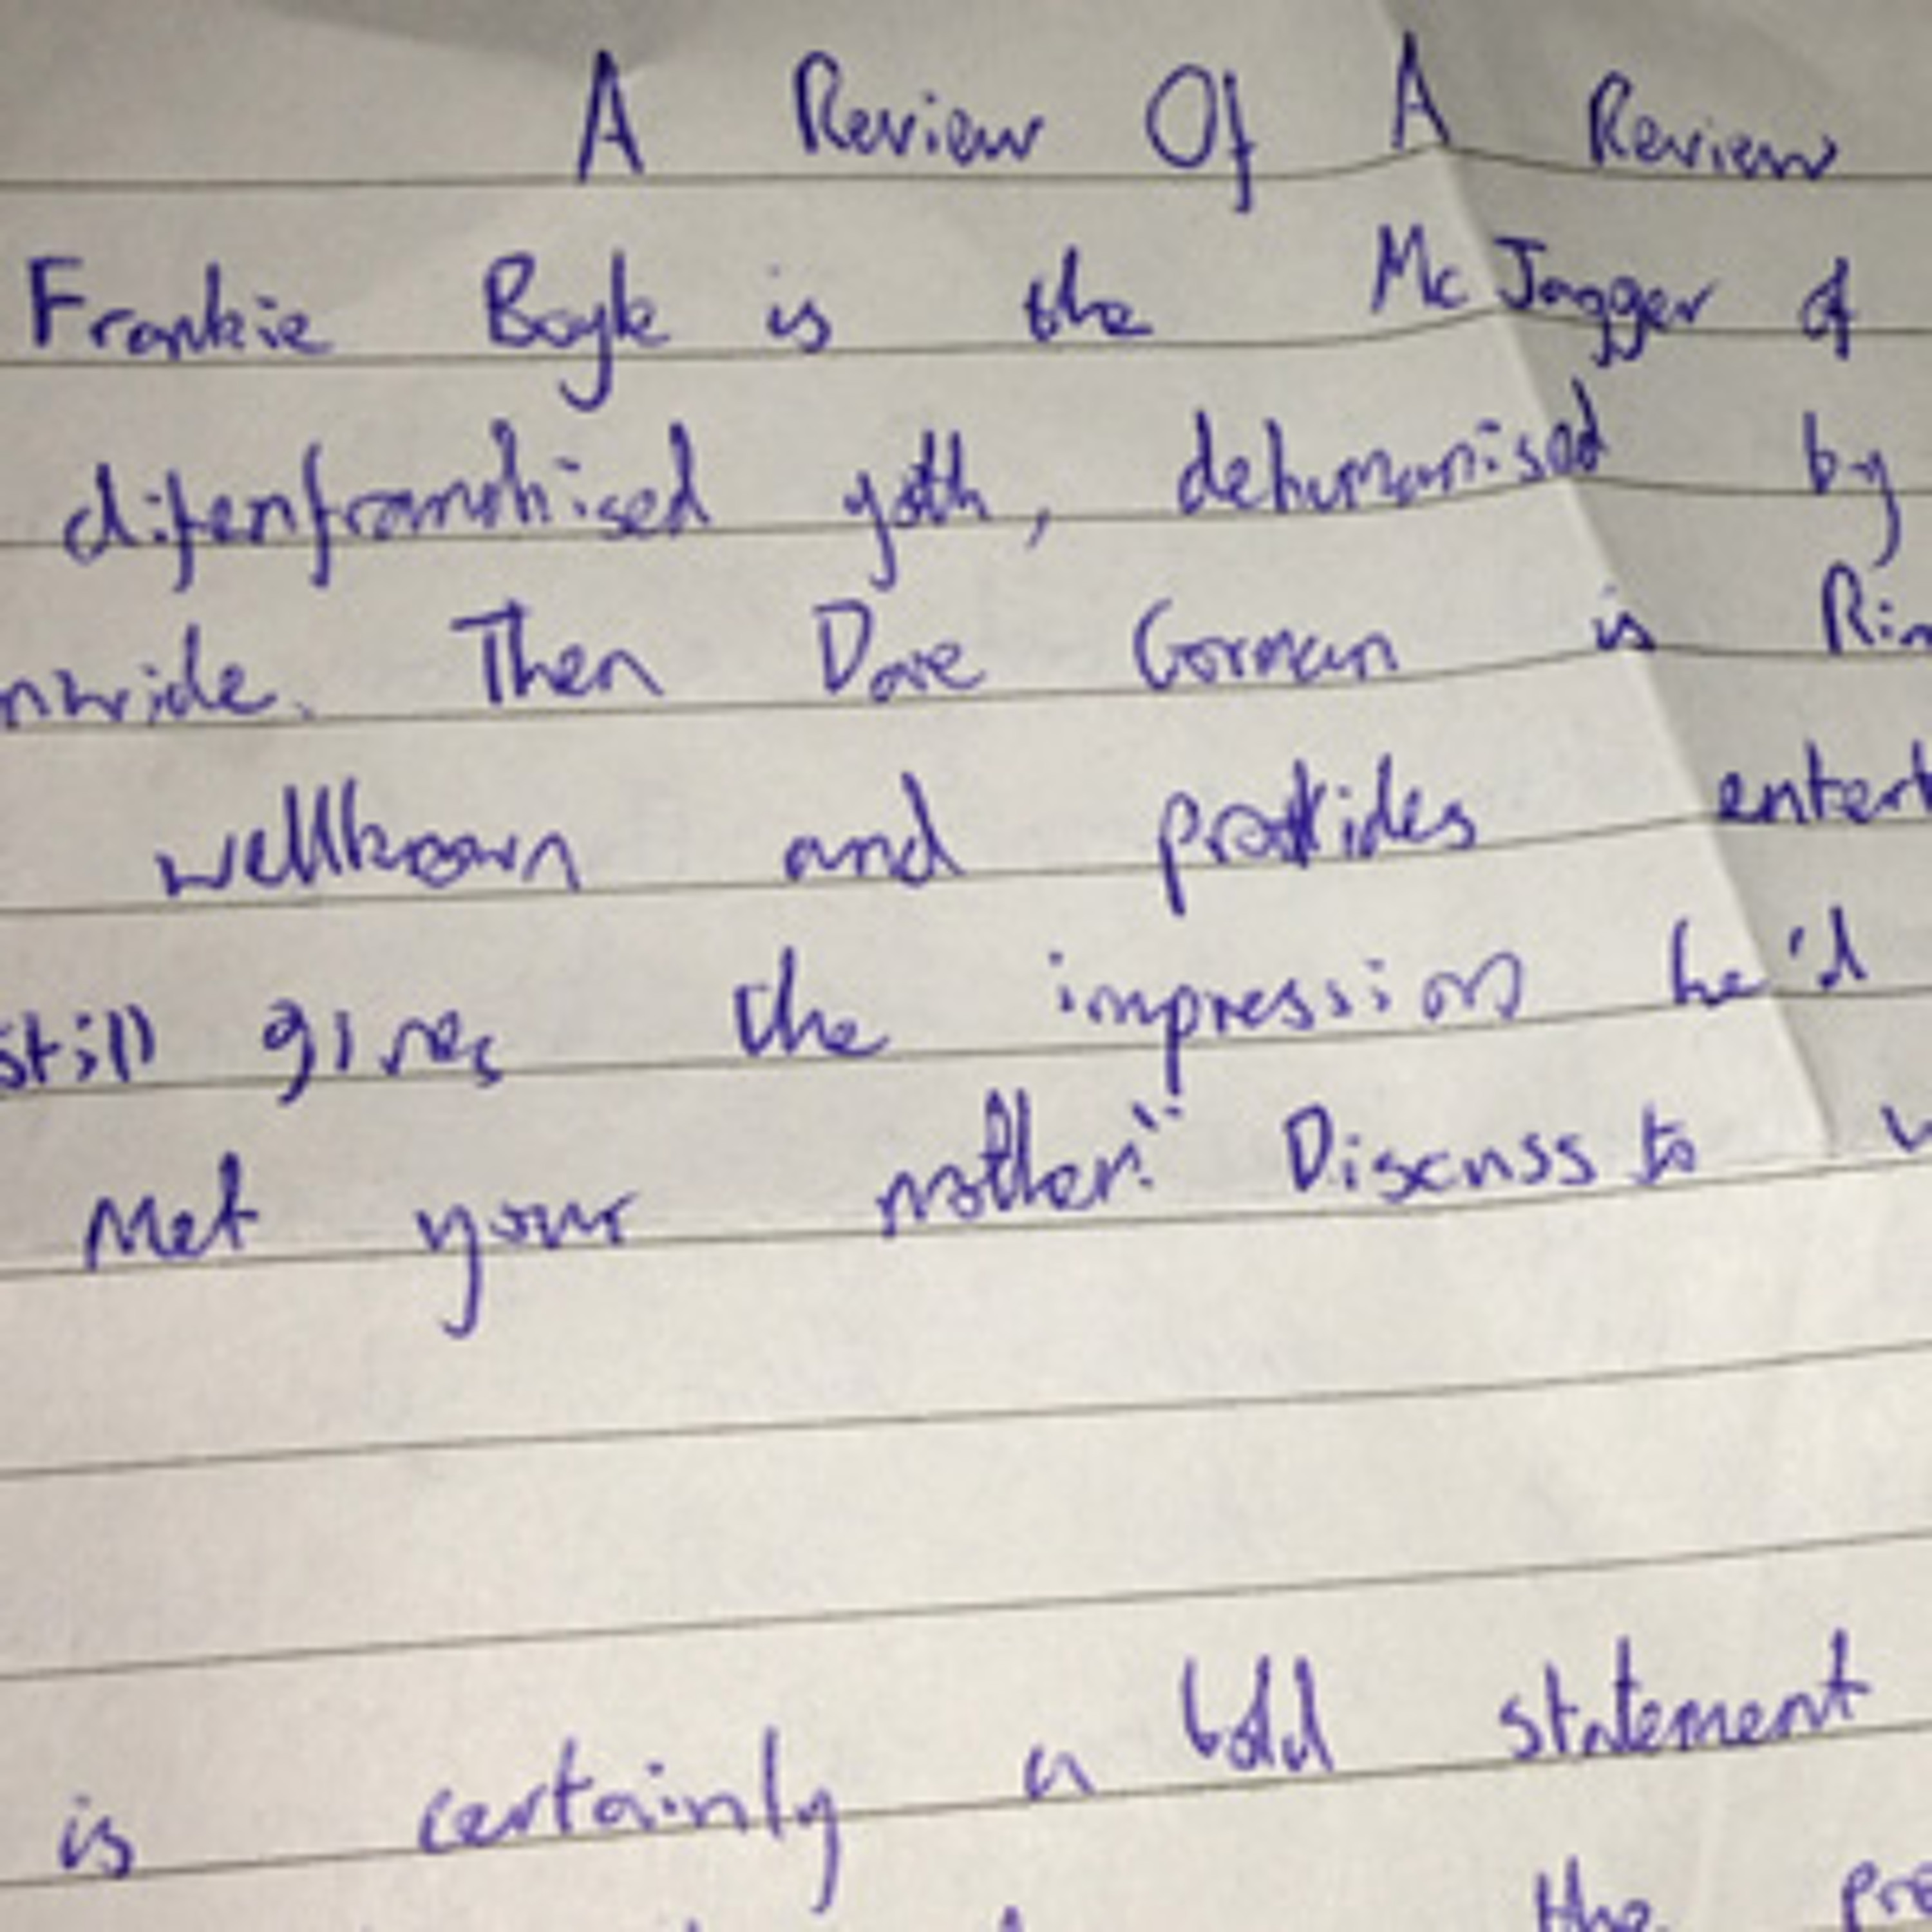 A Review Of A Review
Frankie Boyle is the Mc Jagger of
difenfranchised yoth, dehumanised by
nwide. Then Dave Gorman is Rin
wellknown and provides entert
still gives the impression he'd
Met your mother." Discuss to
is certainly a bold statement
the pre